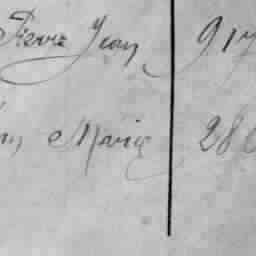 Pierre Jean 917
Marie 28